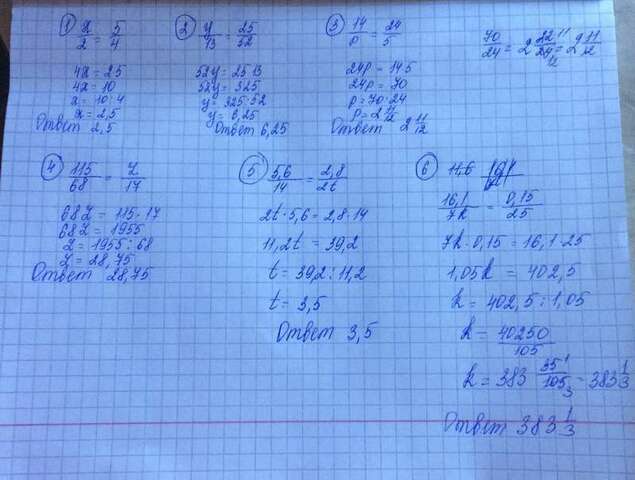 ① x/2 = 5/4
4x = 2·5
4x = 10
x = 10:4
x = 2,5
Ответ 2,5
② y/13 = 25/52
52y = 25·13
52y = 325
y = 325:52
y = 6,25
Ответ 6,25
③ 14/p = 24/5
24p = 14·5
24p = 70
p = 70:24
p = 2 11/12
Ответ 2 11/12
70/24 = 2 22/24 = 2 11/12
④ 115/68 = z/17
68z = 115·17
68z = 1955
z = 1955:68
z = 28,75
Ответ 28,75
⑤ 5,6/14 = 2,8/2t
2t·5,6 = 2,8·14
11,2t = 39,2
t = 39,2:11,2
t = 3,5
Ответ 3,5
⑥
16,1/7k = 0,15/25
7k·0,15 = 16,1·25
1,05k = 402,5
k = 402,5:1,05
k = 40250/105
k = 383 35/105 = 383 1/3
Ответ 383 1/3